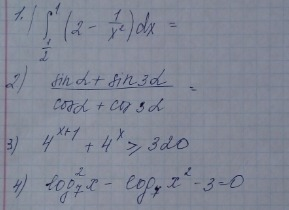 1.) ∫_{1/2}^{1} (2 - 1/x²)dx =
2) (sin α + sin 3α)/(cos α + cos 3α) =
3) 4^{x+1} + 4^x ⩾ 320
4) log₇² x - log₇ x² - 3 = 0